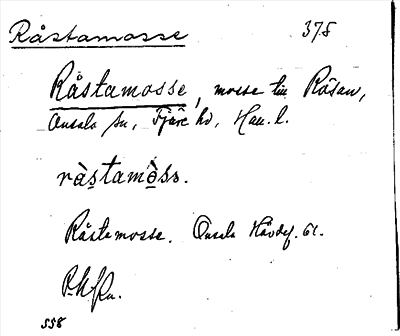 Råstamosse 375
Råstamosse, mosse till Rösan,
Onsala sn, Fjäre hd, Hall. l.
ràstamòss.
Råstamosse. Onsala Hävdef. 61.
558